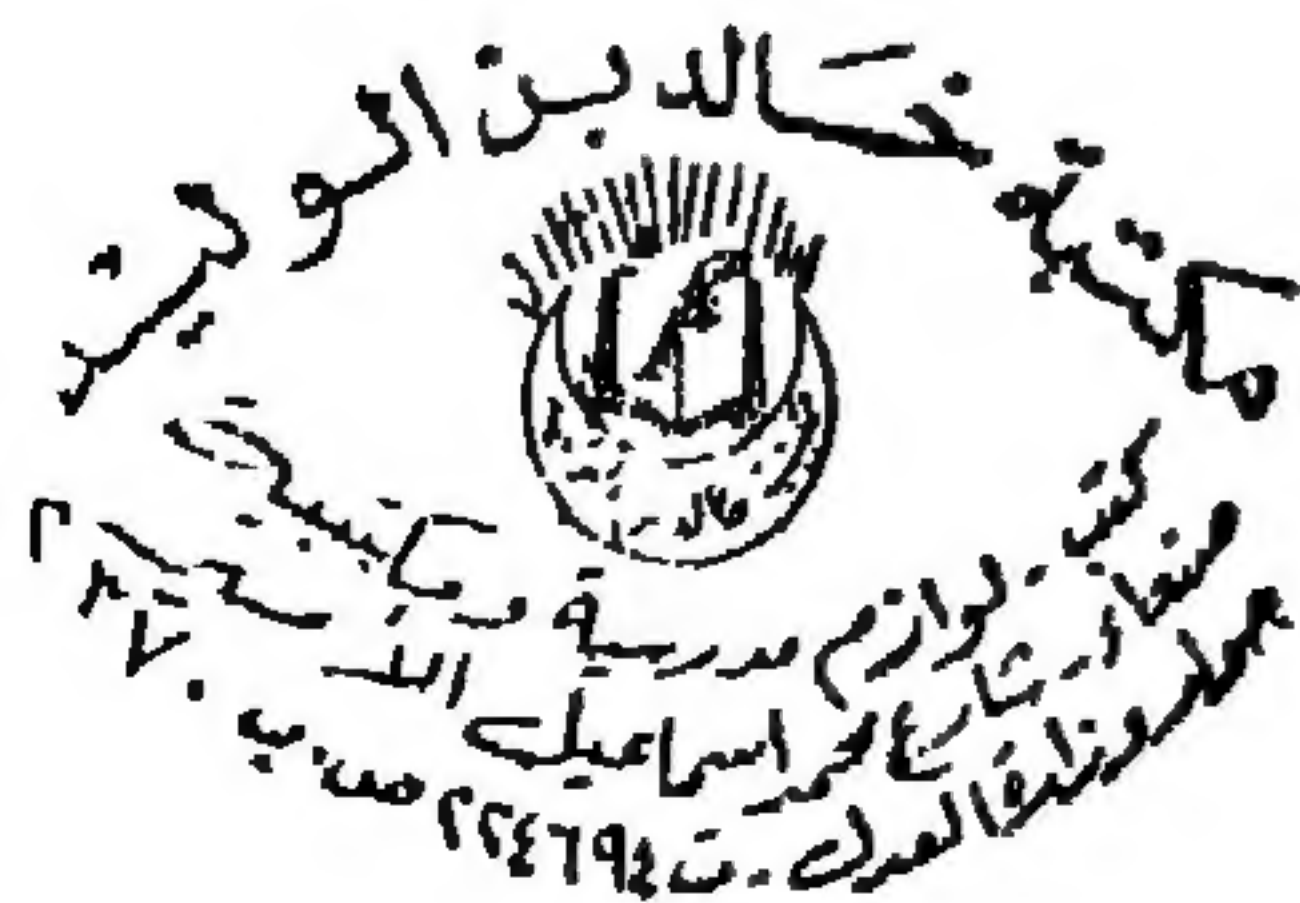 مكتبة خالد بن الوليد
كتب. لوازم مدرسية ومكتبية
صنعاء - شارع محمد اسماعيل
العدل - ت ٢٢٤٦٩٤ ص.ب ٢٣٧٠
خالد